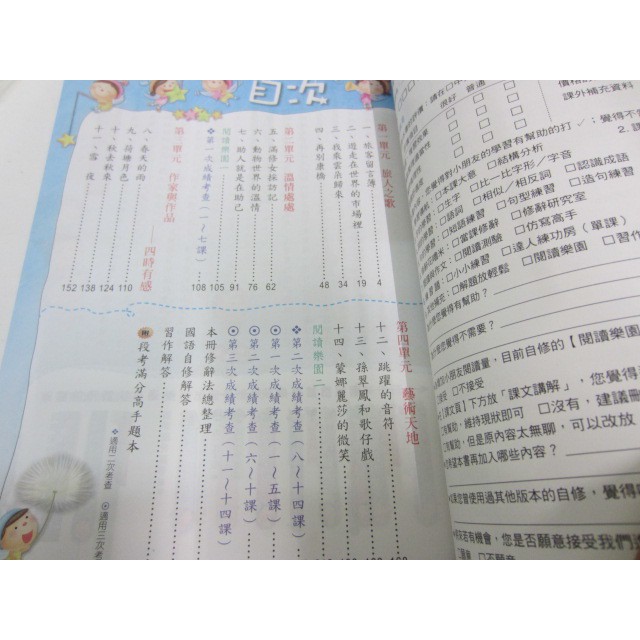 目次
第一單元 旅人之歌
一、旅客留言簿 4
二、遊走在世界的市場裡 19
三、我乘雲朵歸來 34
四、再別康橋 48
第二單元 溫情處處
五、滿修女採訪記 62
六、動物世界的溫情 76
七、助人就是在助己 91
閱讀樂園一 105
第一次成績考查(一~七課) 108
第三單元 作家與作品——四時有感
八、春天的雨 110
九、荷塘月色 124
十、秋去秋來 138
十一、雪夜 152
第四單元 藝術天地
十二、跳躍的音符
十三、孫翠鳳和歌仔戲
十四、蒙娜麗莎的微笑
閱讀樂園二
第二次成績考查(八~十四課)
第一次成績考查(一~五課)
第二次成績考查(六~十課)
第三次成績考查(十一~十四課)
本冊修辭法總整理
國語自修解答
習作解答
附 段考滿分高手題本
適用二次考查
適用三次考
很好 普通
課外補充資料
您覺得對小朋友的學習有幫助的打✓;覺得不
□課本大意 □結構分析
□生字 □比一比字形/字音 □認識成語
□語詞 □相似/相反詞 □造句練習
□短語練習 □句型練習
□當課修辭 □修辭研究室
□閱讀測驗 □仿寫高手
□小小練習 □達人練功房(單課)
□解題放輕鬆 □閱讀樂園 □習作
您覺得有幫助?
您覺得不需要?
小朋友閱讀量,目前自修的【閱讀樂園
□不接受
【課文頁】下方放「課文講解」,您覺得
幫助,維持現狀即可 □沒有,建議刪
幫助,但是原內容太無聊,可以改放
希望本書再加入哪些內容?
您曾使用過其他版本的自修,覺得
若有機會,您是否願意接受我們
□願意 □不願意